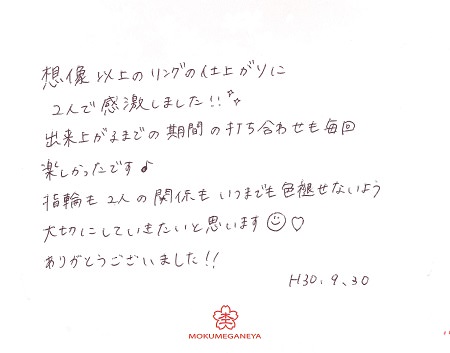 想像以上のリングの仕上がりに
2人で感激しました!!
出来上がるまでの期間の打ち合わせも毎回
楽しかったです♪
指輪も2人の関係もいつまでも色褪せないよう
大切にしていきたいと思います☺♡
ありがとうございました!!
H30.9.30
MOKUMEGANEYA